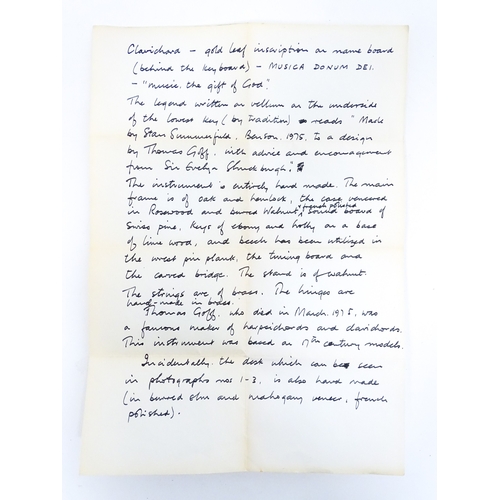 Clavichord - gold leaf inscription on name board
(behind the keyboard) - MUSICA DONUM DEI.
- "music, the gift of God".
The legend written on vellum on the underside
of the lowest key (by tradition) reads "Made
by Stan Summerfield, Benson, 1975, to a design
by Thomas Goff, with advice and encouragement
from Sir Evelyn Shuckburgh."
The instrument is entirely hand made. The main
frame is of oak and hemlock, the case veneered
in Rosewood and burred Walnut, french polished, sound board of
Swiss pine, keys of ebony and holly on a base
of lime wood, and beech has been utilised in
the wrest pin plank, the tuning board and
the carved bridge. The stand is of walnut.
The strings are of brass. The hinges are
hand-made in brass.
Thomas Goff, who died in March, 1975, was
a famous maker of harpsichords and clavichords.
This instrument was based on 17th century models.
Incidentally, the desk which can be seen
in photographs nos 1-3, is also hand made
(in burred elm and mahogany veneer, french
polished).